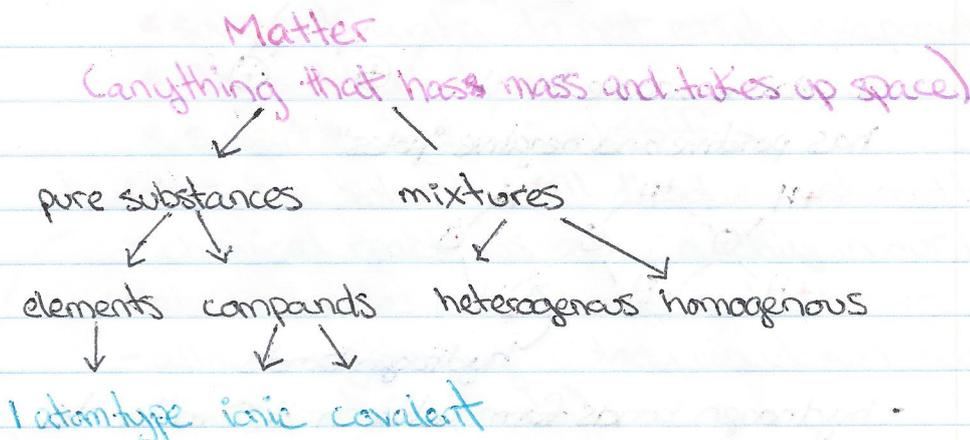 Matter
(anything that has mass and takes up space)
pure substances mixtures
elements compands heterogenous homogenous
1 atom type ionic covalent